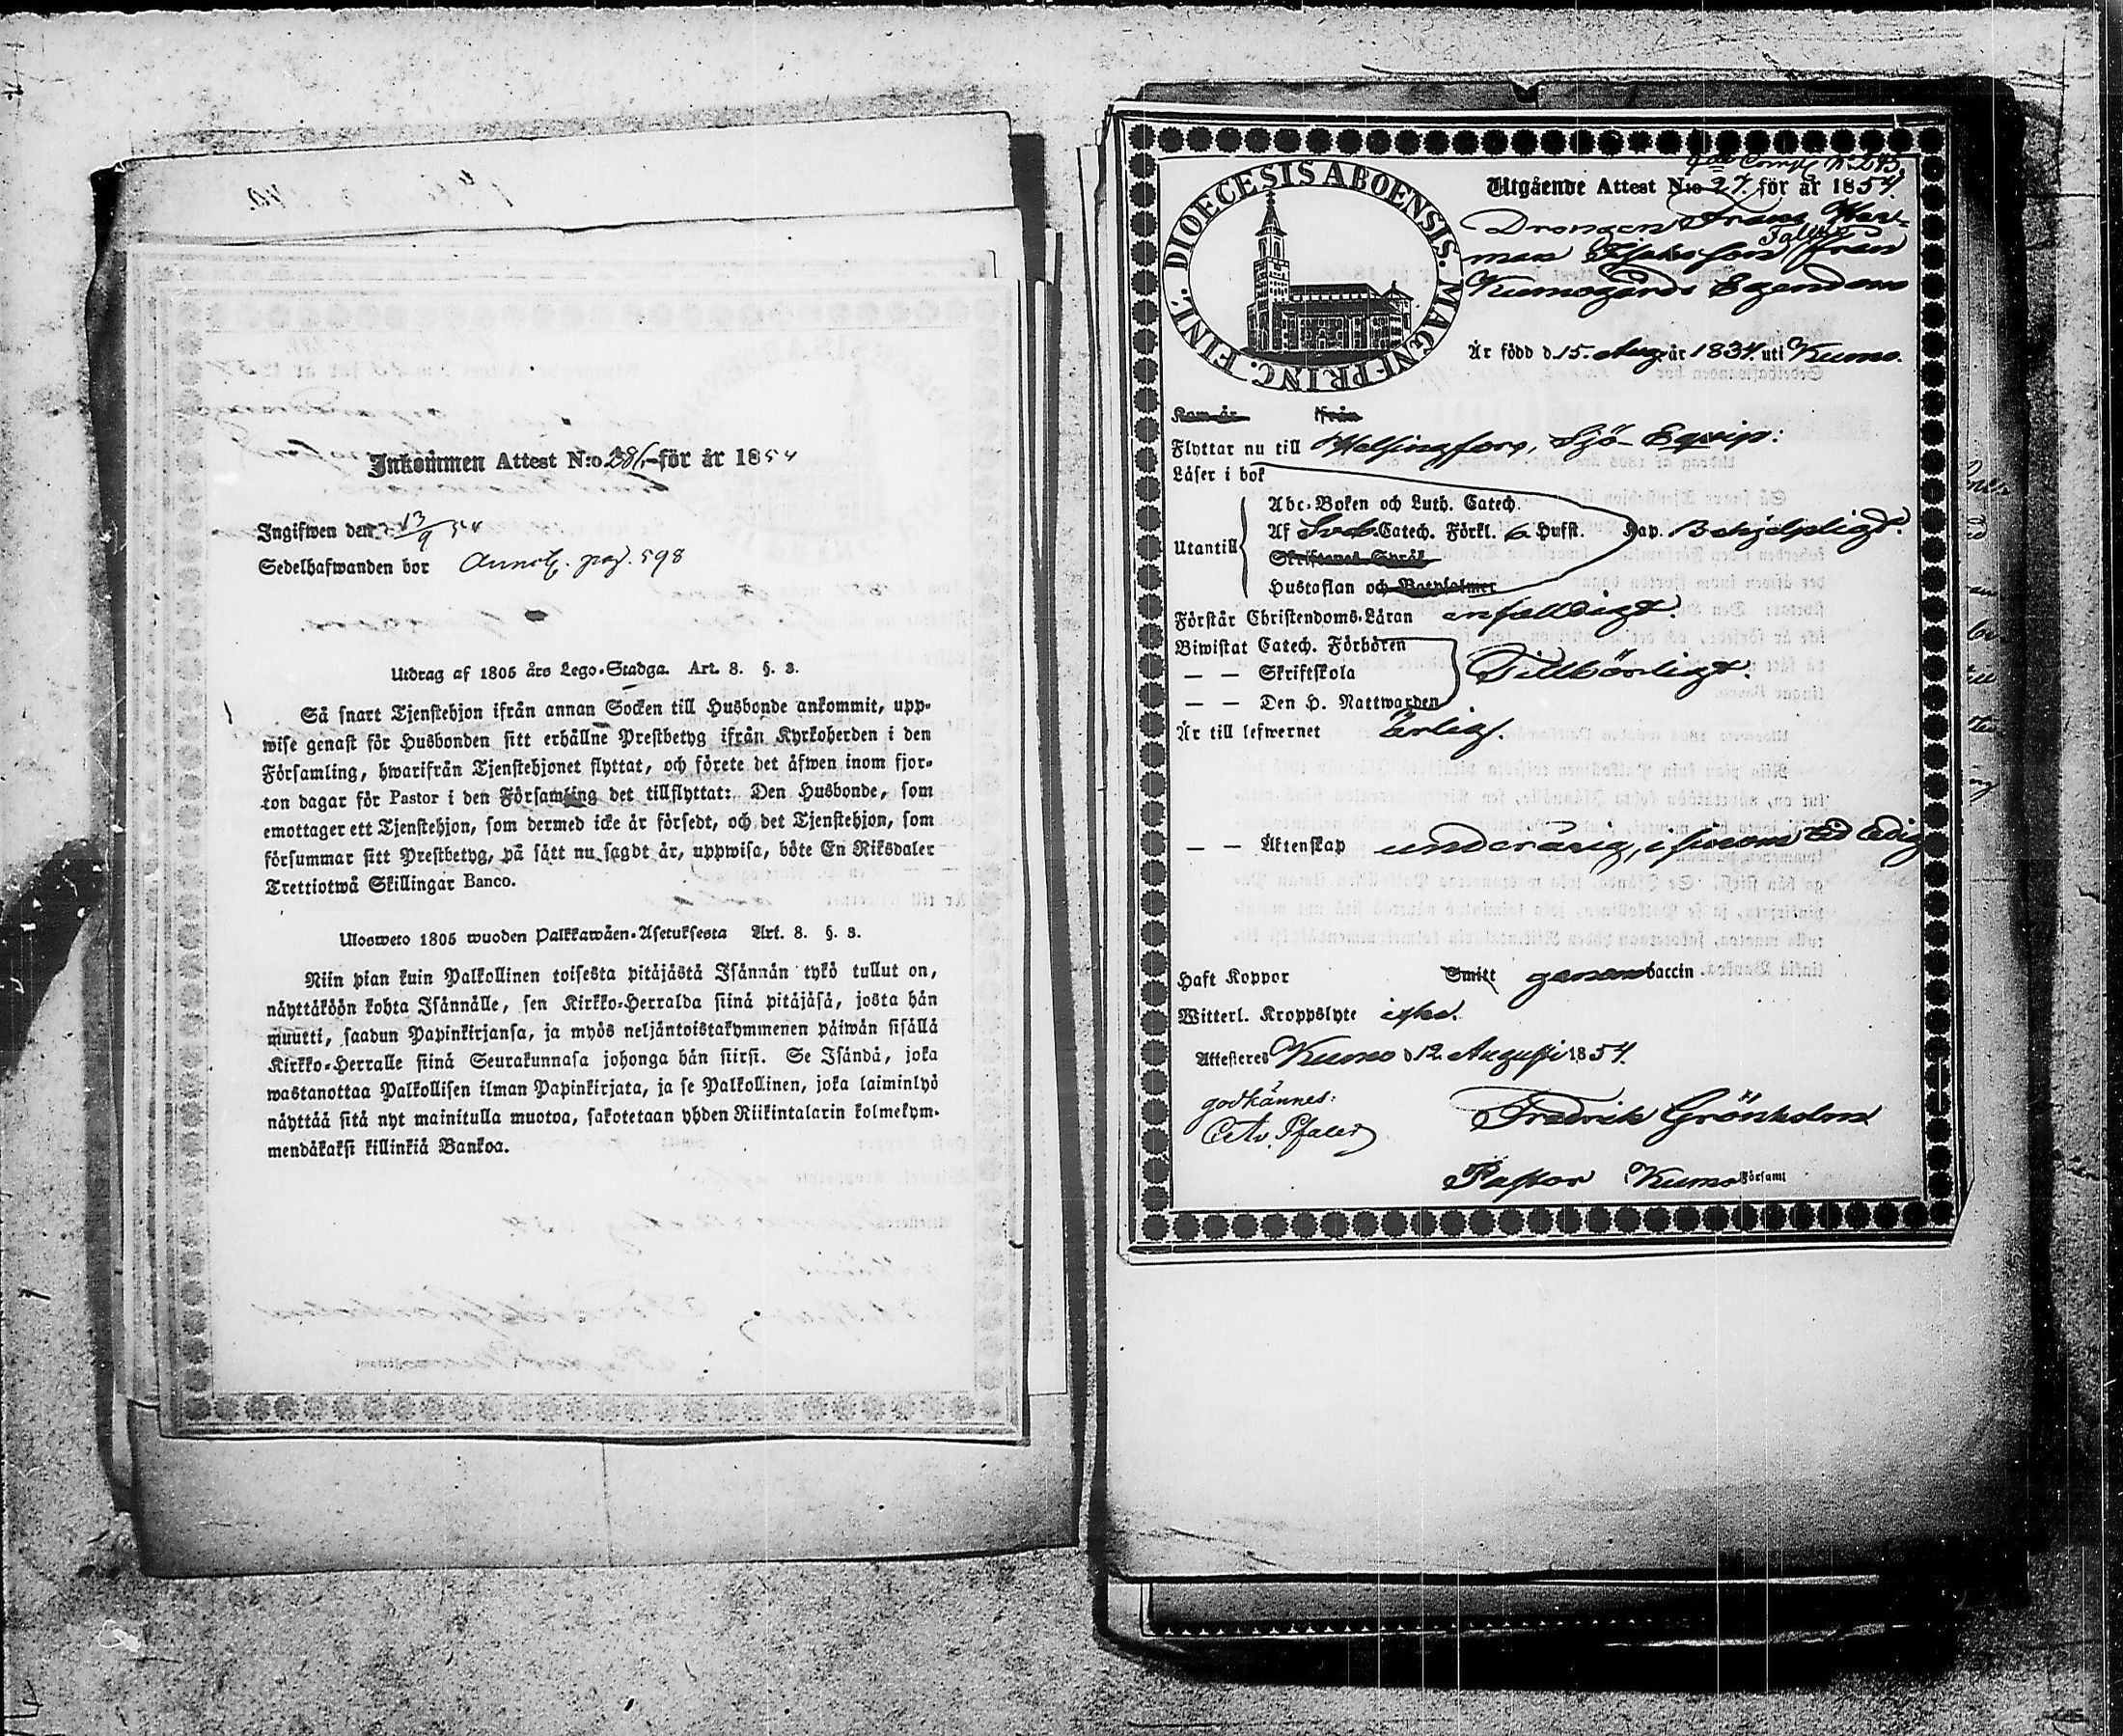 Inkommen Attest N:o 286 för år 1854
Ingifwen den 13/9 54
Sedelhafwanden bor Annot. pag. 598
Utdrag af 1805 års Lego-Stadga. Art. 8. §. 3.
Så snart Tjenstehjon ifrån annan Socken till Husbonde ankommit, upp-
wise genast för Husbonden sitt erhållne Prestbetyg ifrån Kyrkoherden i den
Församling, hwarifrån Tjenstehjonet flyttat, och förete det äfwen inom fjor-
ton dagar för Pastor i den Församling det tillflyttat: Den Husbonde, som
emottager ett Tjenstehjon, som dermed icke är försedt, och det Tjenstehjon, som
försummar sitt Prestbetyg, på sätt nu sagdt är, uppwisa, böte En Riksdaler
Trettiotwå Skillingar Banco.
Ulosweto 1805 wuoden Palkkawäen-Asetuksesta Art. 8. §. 3.
Niin pian kuin Palkollinen toisesta pitäjästä Isännän tykö tullut on,
näyttäköön kohta Isännälle, sen Kirkko-Herralda siinä pitäjäsä, josta hän
muutti, saadun Papinkirjansa, ja myös neljäntoistakymmenen päiwän sisällä
Kirkko-Herralle siinä Seurakunnasa johonga hän siirsi. Se Isändä, joka
wastanottaa Palkollisen ilman Papinkirjata, ja se Palkollinen, joka laiminlyö
näyttää sitä nyt mainitulla muotoa, sakotetaan yhden Riikintalarin kolmekym-
mendäkaksi killinkiä Bankoa.
DIOECESIS ABOENSIS. MAGNI PRINC. FINL.
Utgående Attest N:o 27 för år 1854.
Drengen Frans Her-
man from Kumogårds Egendom
Är född d. 15. Aug. år 1834. uti Kumo.
Kom år från
Flyttar nu till Helsingfors, Sjö-Equip:
Läser i bok
Abc-Boken och Luth. Catech.
Utantill Af Sveb. Catech. Förkl. 6 Hufst. Hap. Behjelpligt.
Skriftenes Språk
Hustaflan och Botpsalmer
Förstår Christendoms-Läran enfaldigt.
Biwistat Catech. Förhören
— — Skriftskola Tillbörligt.
— — Den H. Nattwarden
Är till lefwernet ärlig.
— — Äktenskap underårig, ledig
Haft Koppor Smitt genom vaccin.
Witterl. Kroppslyte icke.
Attesteres Kumo d 12 Augusti 1854.
godkännes:
Fredrik Grönholm
Pastor i Kumo Församl